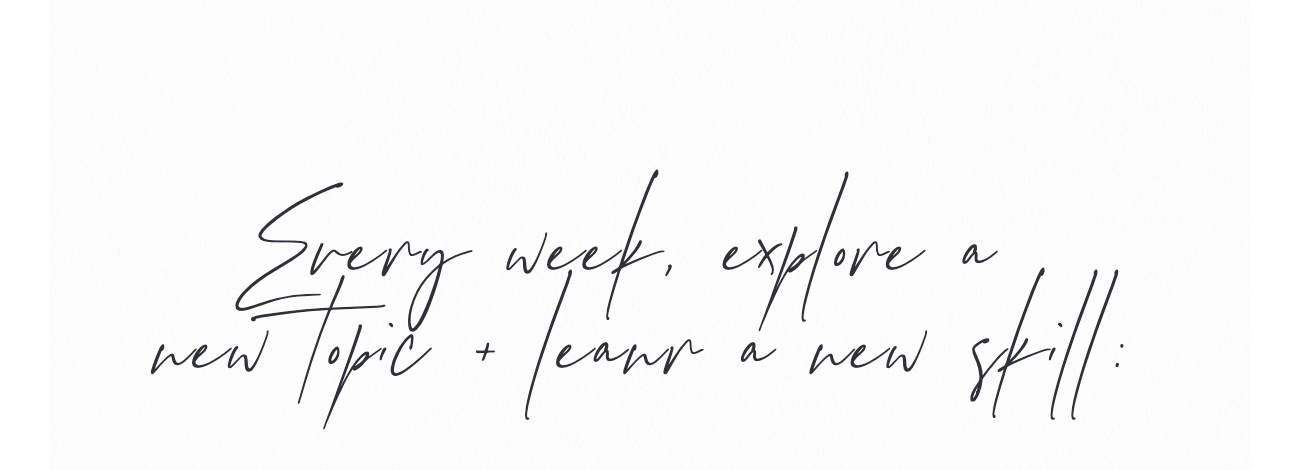 Every week, explore a
new topic + leanr a new skill: